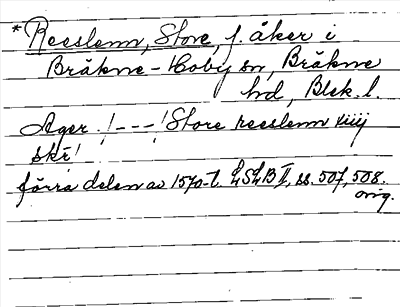 *Reeslenn, Store, f. åker i
Bräkne-Hoby sn, Bräkne
hd, Blek. l.
Ager ! --- ! Store reeslenn viiij
skr!
förra delen av 1570-t. LSLB II, ss. 507, 508.
orig.